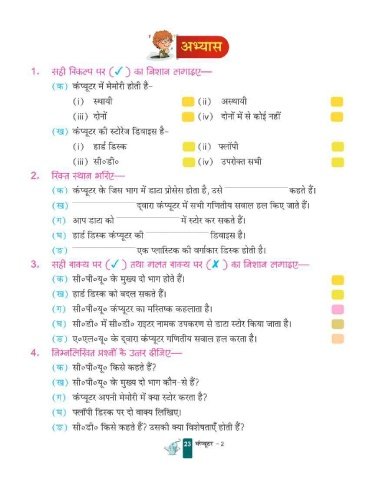 अभ्यास
1. सही विकल्प पर (✓) का निशान लगाइए—
(क) कंप्यूटर में मेमोरी होती है-
(i) स्थायी (ii) अस्थायी
(iii) दोनों (iv) दोनों में से कोई नहीं
(ख) कंप्यूटर की स्टोरेज डिवाइस है-
(i) हार्ड डिस्क (ii) फ्लॉपी
(iii) सी०डी० (iv) उपरोक्त सभी
2. रिक्त स्थान भरिए—
(क) कंप्यूटर के जिस भाग में डाटा प्रोसेस होता है, उसे ____________ कहते हैं।
(ख) ____________ द्वारा कंप्यूटर में सभी गणितीय सवाल हल किए जाते हैं।
(ग) आप डाटा को ____________ में स्टोर कर सकते हैं।
(घ) हार्ड डिस्क कंप्यूटर की ____________ डिवाइस है।
(ङ) ____________ एक प्लास्टिक की वर्गाकार डिस्क होती है।
3. सही वाक्य पर (✓) तथा गलत वाक्य पर (✗) का निशान लगाइए—
(क) सी०पी०यू० के मुख्य दो भाग होते हैं।
(ख) हार्ड डिस्क को बदल सकते हैं।
(ग) सी०पी०यू० कंप्यूटर का मस्तिष्क कहलाता है।
(घ) सी०डी० में सी०डी० राइटर नामक उपकरण से डाटा स्टोर किया जाता है।
(ङ) ए०एल०यू० के द्वारा कंप्यूटर गणितीय सवाल हल करता है।
4. निम्नलिखित प्रश्नों के उत्तर दीजिए—
(क) सी०पी०यू० किसे कहते हैं?
(ख) सी०पी०यू० के मुख्य दो भाग कौन-से हैं?
(ग) कंप्यूटर अपनी मेमोरी में क्या स्टोर करता है?
(घ) फ्लॉपी डिस्क पर दो वाक्य लिखिए।
(ङ) सी०डी० किसे कहते हैं? उसकी क्या विशेषताएँ होती हैं?
23 कंप्यूटर – 2